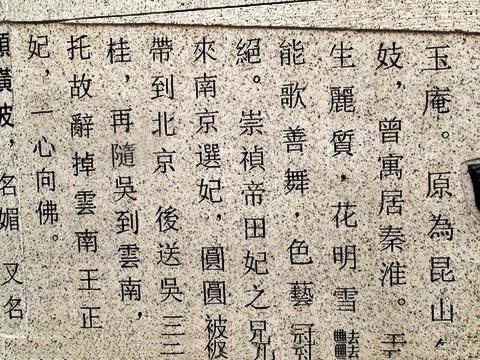 玉庵。原為昆山
妓，曾寓居秦淮。
生麗質，花明雪
能歌善舞，色藝冠
絕。崇禎帝田妃之兄
來南京選妃，圓圓被
帶到北京 後送吳三
桂，再隨吳到雲南，
托故辭掉雲南王正
妃，一心向佛。
顧橫波，名媚 又名